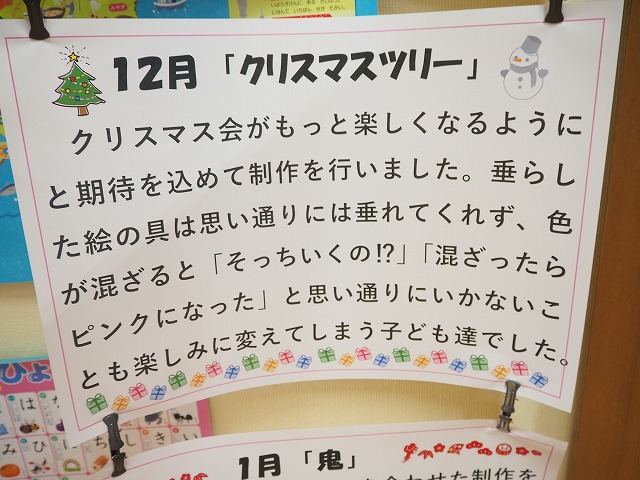 12月「クリスマスツリー」
クリスマス会がもっと楽しくなるように
と期待を込めて制作を行いました。垂らし
た絵の具は思い通りには垂れてくれず、色
が混ざると「そっちいくの!?」「混ざったら
ピンクになった」と思い通りにいかないこ
とも楽しみに変えてしまう子ども達でした。
ひょ
1月「鬼」
わせた制作を